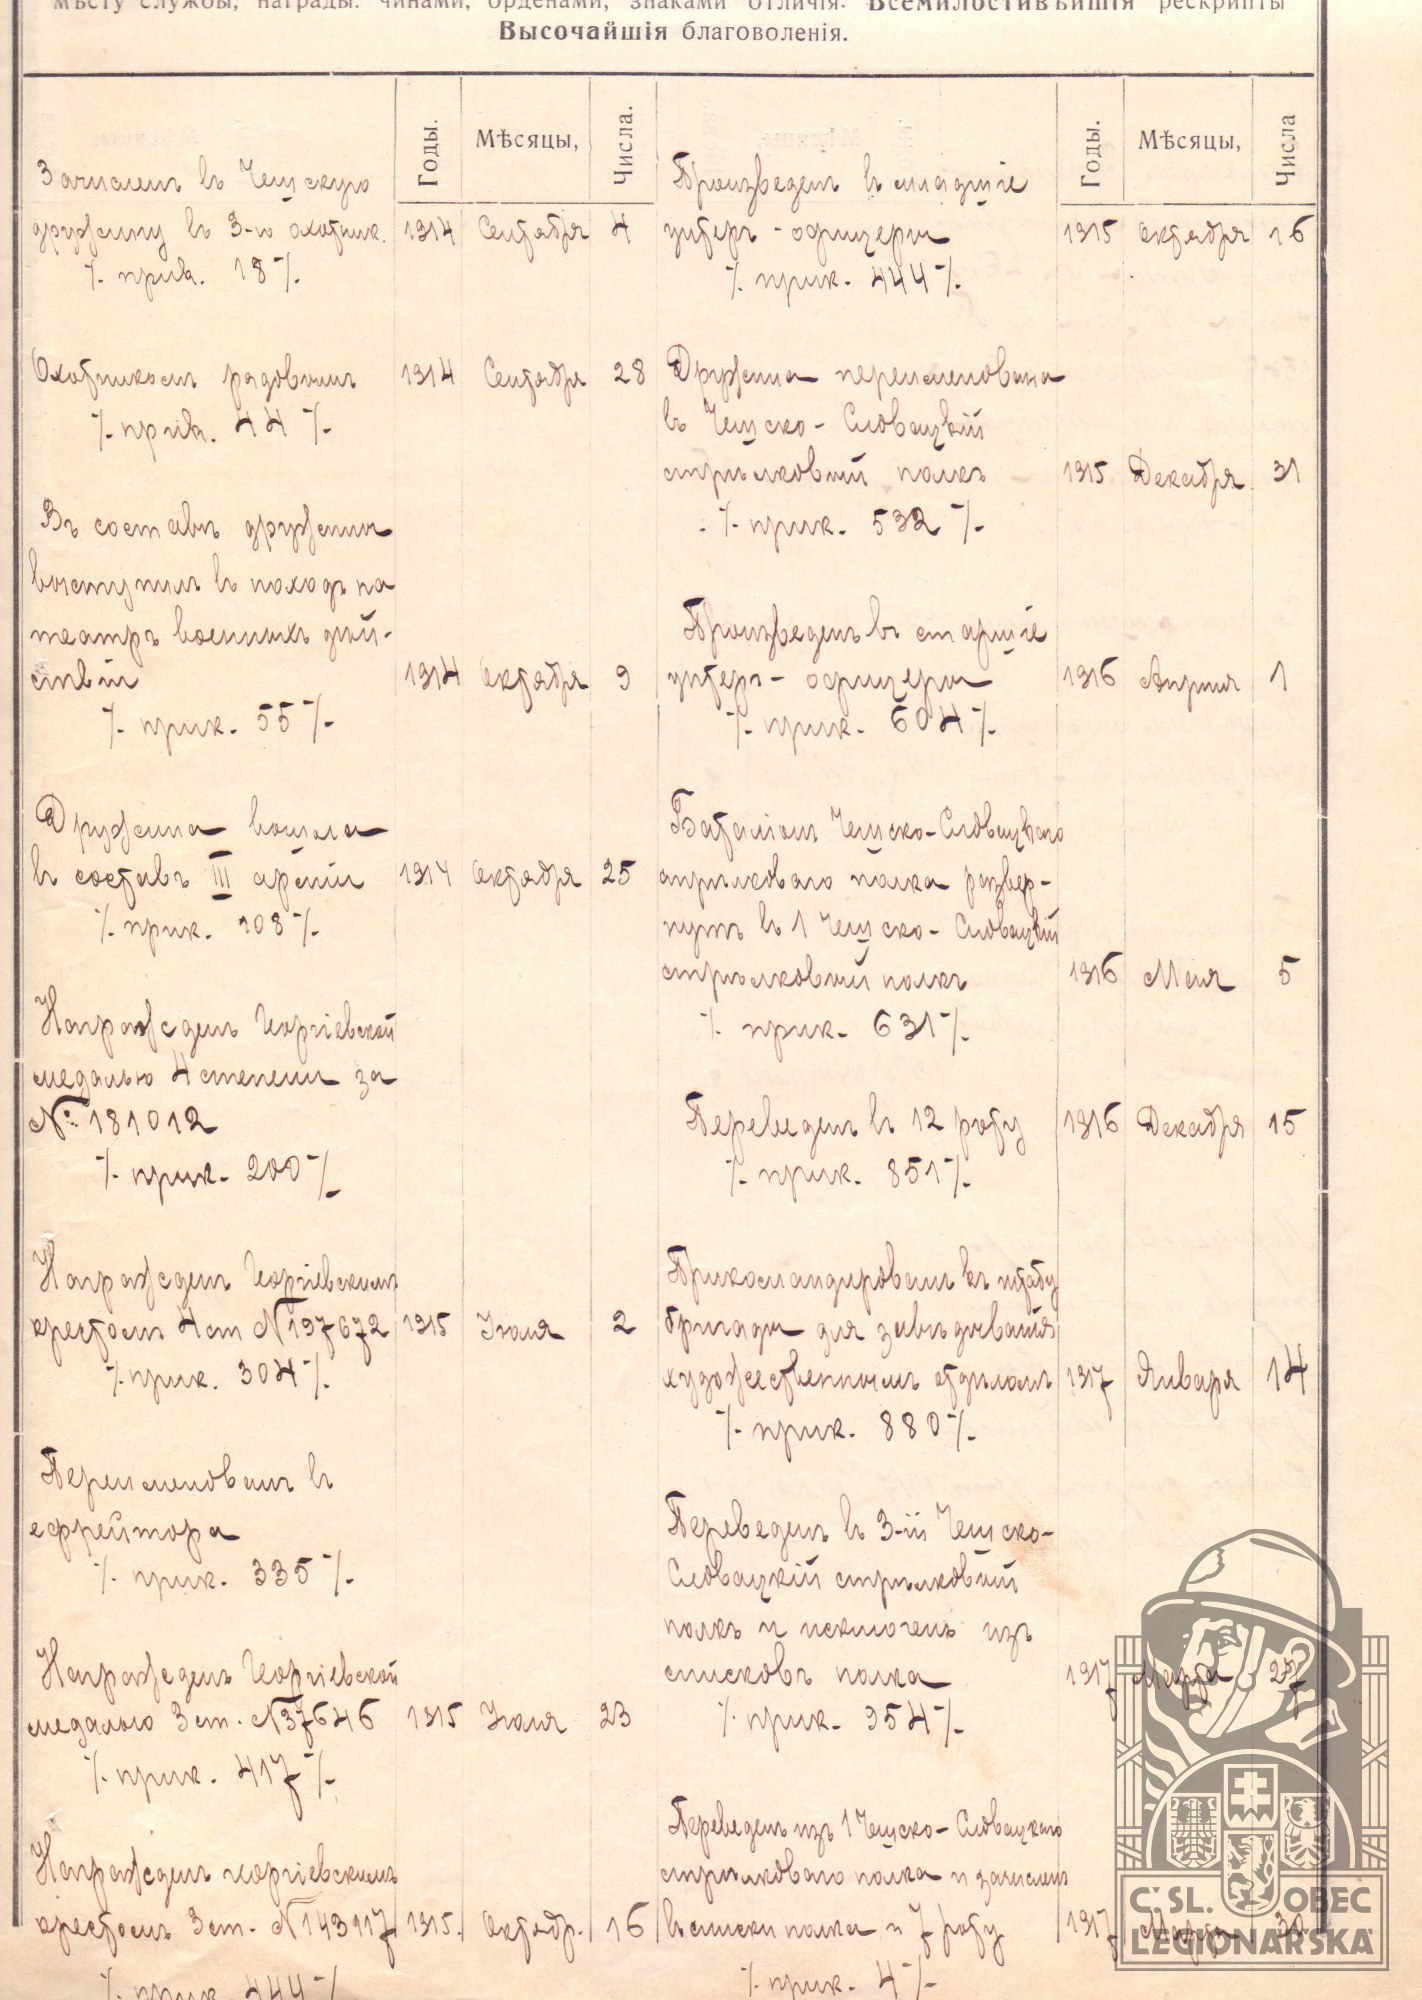 мѣсту службы, награды: чинами, орденами, знаками отличія. Всемилостивѣйшія рескрипты
Высочайшія благоволенія.
Годы. Мѣсяцы, Числа.
Зачислен въ Чешскую
дружину въ 3-ю охотник. 1914 Сентября 4
% прик. 18 %
Охотником рядовым 1914 Сентября 28
% прик. 44 %
Въ составѣ дружины
выступил въ поход на
театръ военныхъ дѣй-
ствій 1914 Октября 9
% прик. 55 %
Дружина вошла
въ составъ III арміи 1914 Октября 25
% прик. 108 %
Награжден Георгіевской
медалью 4 степени за
№ 181012
% прик. 200 %
Награжден Георгіевским
крестом 4 ст N 137672 1915 Іюля 2
% прик. 304 %
Переименован въ
ефрейтора
% прик. 335 %
Награжден Георгіевской
медалью 3 ст. N 37646 1915 Іюля 23
% прик. 417 %
Награжден георгіевским
крестом 3 ст. N 143117 1915. Октябр. 16
% прик. 444 %
Годы. Мѣсяцы, Числа
Произведен въ младшіе
унтеръ-офицеры 1915 Октября 16
% прик. 444 %
Дружина переименована
въ Чешско-Словацкій
стрѣлковый полкъ 1915 Декабря 31
% прик. 532 %
Произведен въ старшіе
унтеръ-офицеры 1916 Апрѣля 1
% прик. 604 %
Баталіон Чешско-Словацкаго
стрѣлковаго полка развер-
нутъ въ 1 Чешско-Словацкій
стрѣлковый полкъ 1916 Мая 5
% прик. 631 %
Переведен въ 12 роту 1916 Декабря 15
% прик. 851 %
Прикомандирован къ штабу
бригады для завѣдыванія
художественным отдѣлом 1917 Января 14
% прик. 880 %
Переведен въ 3-ій Чешско-
Словацкій стрѣлковый
полкъ и исключенъ изъ
списковъ полка 1917 Марта 27
% прик. 954 %
Переведен изъ 1 Чешско-Словацкаго
стрѣлковаго полка и зачислен
въ списки полка и 7 роту 1917 Марта 30
% прик. 4 %
Č SL. OBEC
LEGIONÁŘSKÁ